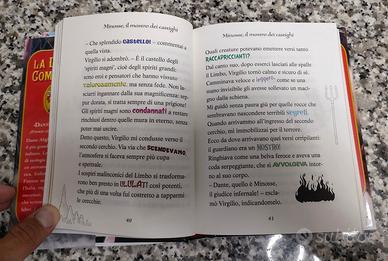 LA D
COM
DAN
Minosse, il mostro dei castighi
– Che splendido castello! – commentai a
quella vista.
Virgilio si addombrò. – È il castello degli
'spiriti magni', cioè degli spiriti grandi:
sono eroi e pensatori che hanno vissuto
valorosamente, ma senza fede. Non la-
sciarti ingannare dalla sua magnificenza: sep-
pur dorata, si tratta sempre di una prigione!
Gli spiriti magni sono condannati a restare
rinchiusi dentro quelle mura in eterno, senza
poter mai uscire.
Detto questo, Virgilio mi condusse verso il
secondo cerchio. Via via che scendevamo
l'atmosfera si faceva sempre più cupa
e spettrale.
I sospiri malinconici del Limbo si trasforma-
rono ben presto in ululati così potenti,
che più di una volta fui costretto a tapparmi
le orecchie.
40
Minosse, il mostro dei castighi
Quali creature potevano emettere versi tanto
raccapriccianti?
Dal canto suo, dopo esserci lasciati alle spalle
il Limbo, Virgilio tornò calmo e sicuro di sé.
Camminava veloce e leggero come se
umano invisibile gli avesse sollevato un maci-
gno dal cuore.
Mi guidò senza paura giù per quelle rocce che
sembravano nascondere terribili segreti.
Quando arrivammo all'ingresso del secondo
cerchio, mi immobilizzai per il terrore.
Ecco da dove arrivavano quei versi orripilanti:
il guardiano era un mostro!
Ringhiava come una belva feroce e aveva una
coda serpeggiante, che si avvolgeva inter-
no al suo corpo.
– Dante, quello è Minosse,
il giudice infernale! – escla-
mò Virgilio, indicandomelo.
41